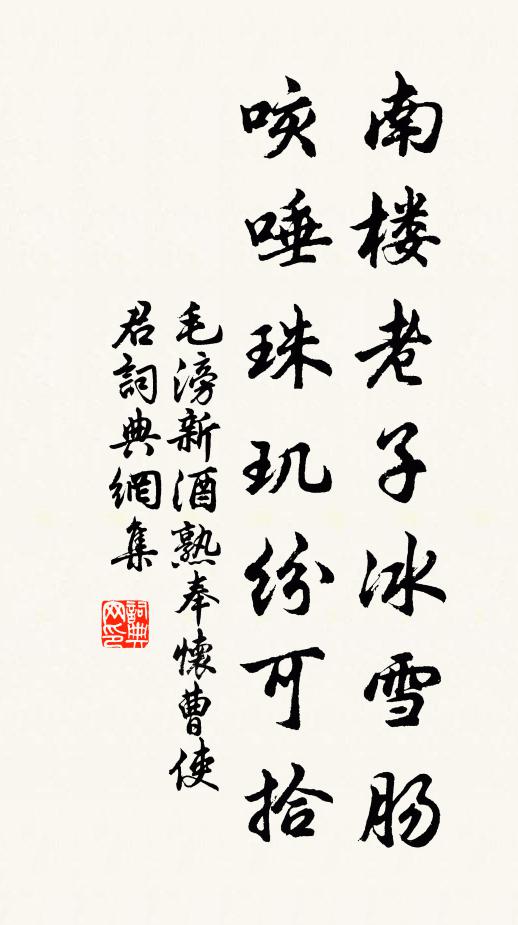 南楼老子冰雪肠
咳唾珠玑纷可拾
毛滂新酒熟奉懷曹使
君詞典網集
詞典网印